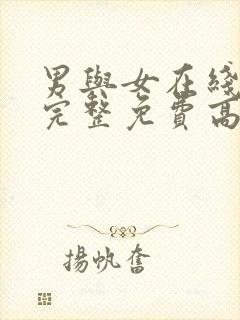 男與女在綫
完整免費高
揚帆奮